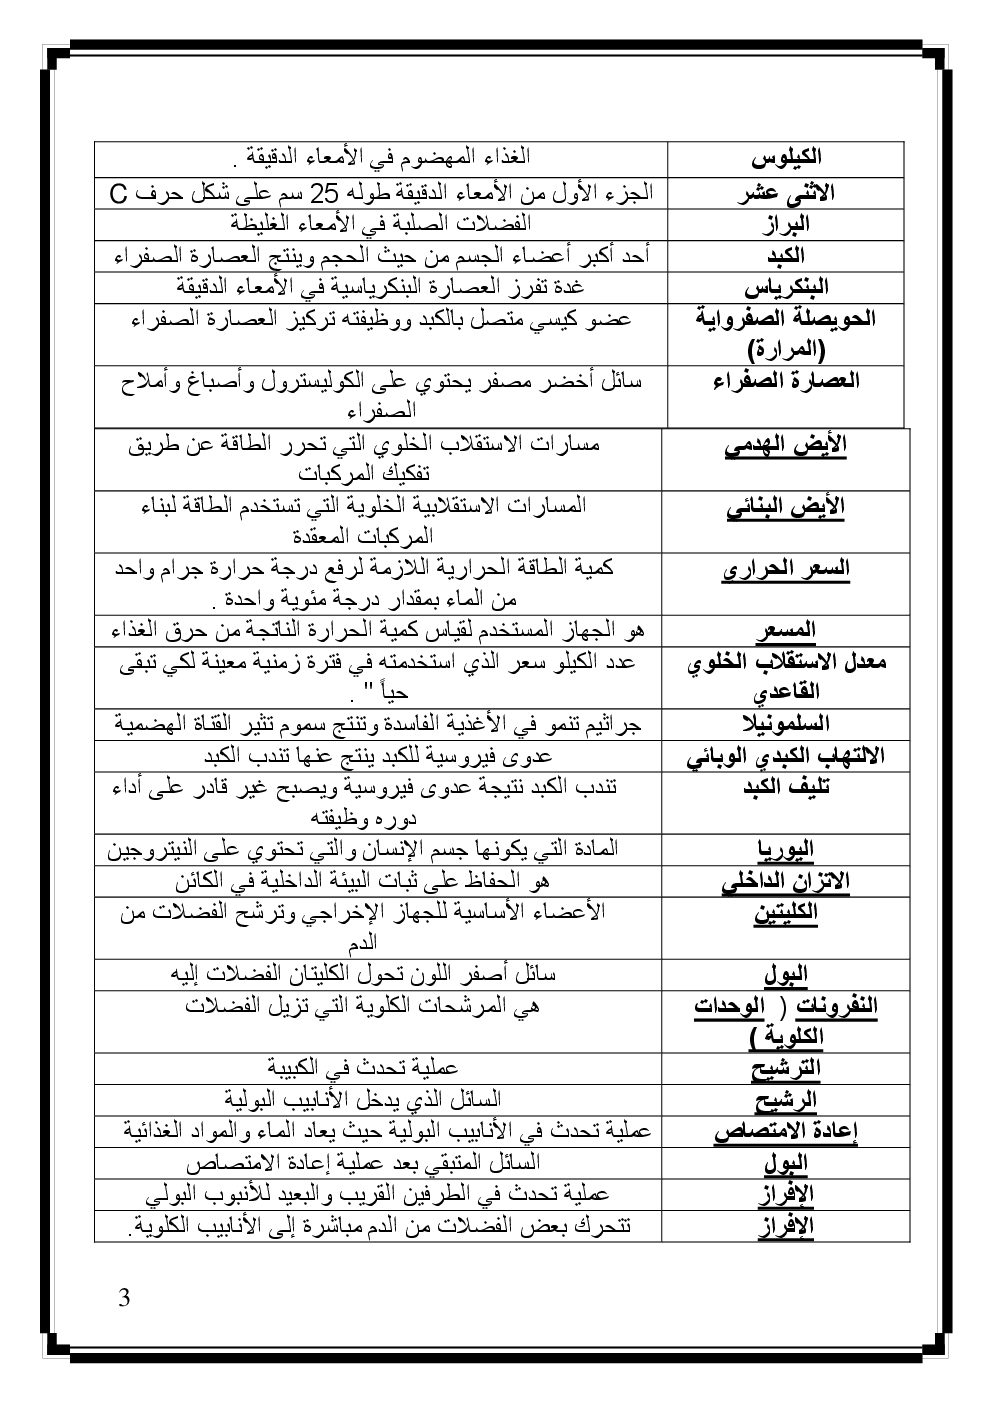 الكيلوس الغذاء المهضوم في الأمعاء الدقيقة .
الاثني عشر الجزء الأول من الأمعاء الدقيقة طوله 25 سم على شكل حرف C
البراز الفضلات الصلبة في الأمعاء الغليظة
الكبد أحد أكبر أعضاء الجسم من حيث الحجم وينتج العصارة الصفراء
البنكرياس غدة تفرز العصارة البنكرياسية في الأمعاء الدقيقة
الحويصلة الصفرواية عضو كيسي متصل بالكبد ووظيفته تركيز العصارة الصفراء
(المرارة)
العصارة الصفراء سائل أخضر مصفر يحتوي على الكوليسترول وأصباغ وأملاح
الصفراء
الأيض الهدمي مسارات الاستقلاب الخلوي التي تحرر الطاقة عن طريق
تفكيك المركبات
الأيض البنائي المسارات الاستقلابية الخلوية التي تستخدم الطاقة لبناء
المركبات المعقدة
السعر الحراري كمية الطاقة الحرارية اللازمة لرفع درجة حرارة جرام واحد
من الماء بمقدار درجة مئوية واحدة .
المسعر هو الجهاز المستخدم لقياس كمية الحرارة الناتجة من حرق الغذاء
معدل الاستقلاب الخلوي عدد الكيلو سعر الذي استخدمته في فترة زمنية معينة لكي تبقى
القاعدي حياً " .
السلمونيلا جراثيم تنمو في الأغذية الفاسدة وتنتج سموم تثير القناة الهضمية
الالتهاب الكبدي الوبائي عدوى فيروسية للكبد ينتج عنها تندب الكبد
تليف الكبد تندب الكبد نتيجة عدوى فيروسية ويصبح غير قادر على أداء
دوره وظيفته
اليوريا المادة التي يكونها جسم الإنسان والتي تحتوي على النيتروجين
الاتزان الداخلي هو الحفاظ على ثبات البيئة الداخلية في الكائن
الكليتين الأعضاء الأساسية للجهاز الإخراجي وترشح الفضلات من
الدم
البول سائل أصفر اللون تحول الكليتان الفضلات إليه
النفرونات ( الوحدات هي المرشحات الكلوية التي تزيل الفضلات
الكلوية )
الترشيح عملية تحدث في الكبيبة
الرشيح السائل الذي يدخل الأنابيب البولية
إعادة الامتصاص عملية تحدث في الأنابيب البولية حيث يعاد الماء والمواد الغذائية
البول السائل المتبقي بعد عملية إعادة الامتصاص
الإفراز عملية تحدث في الطرفين القريب والبعيد للأنبوب البولي
الإفراز تتحرك بعض الفضلات من الدم مباشرة إلى الأنابيب الكلوية.
3